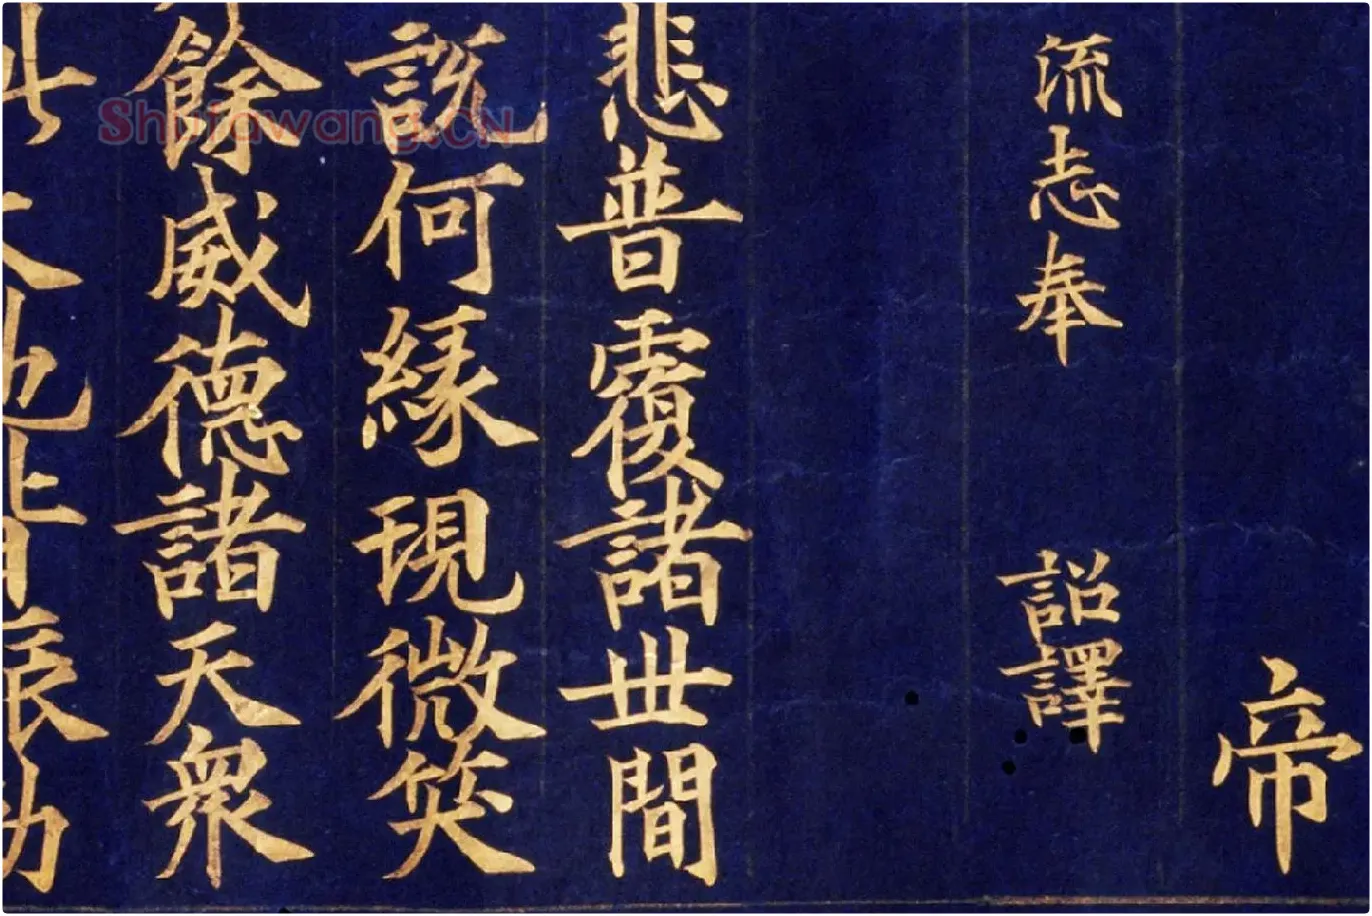 帝
流志奉 詔譯
悲普覆諸世間
説何緣現微笑
餘威德諸天衆
大地皆振動
Shufawang.CN